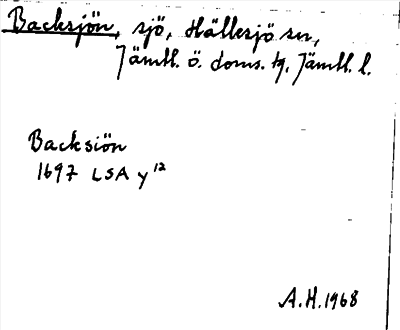 Backsjön, sjö, Hällesjö sn,
Jämtl. ö. doms. tg, Jämtl. l.
Backsiön
1697 LSA y 12
A.H. 1968